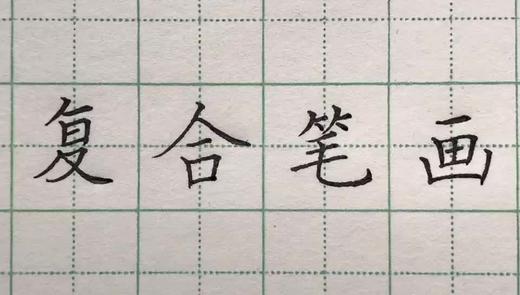 复合笔画